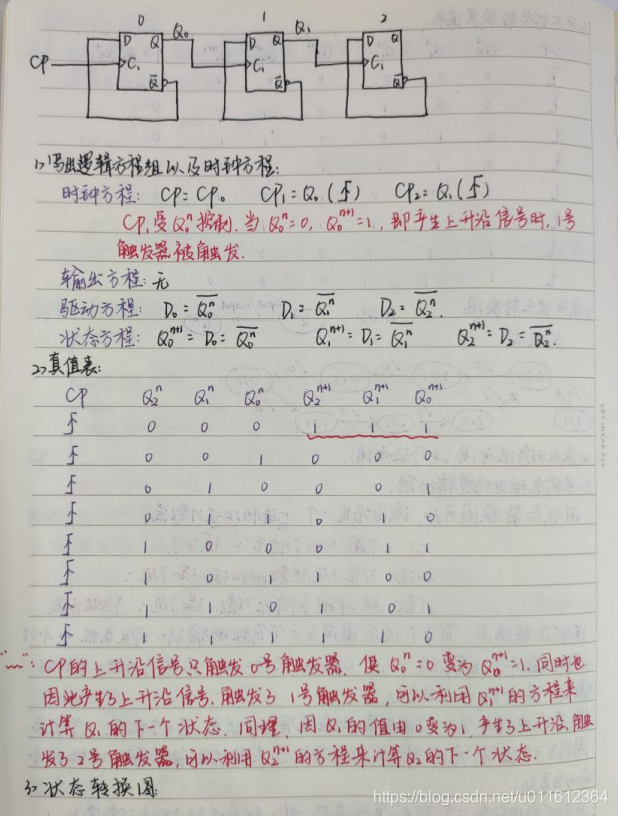 0 1 2
D Q Q₀ D Q Q₁ D Q
CP C₁ Q̅ C₁ Q̅ C₁ Q̅
1、写出逻辑方程组以及时钟方程:
时钟方程: CP=CP₀ CP₁=Q₀(↑) CP₂=Q₁(↑)
CP₁受Q₀ⁿ控制.当Q₀ⁿ=0, Q₀ⁿ⁺¹=1, 即产生上升沿信号时,1号
触发器被触发.
输出方程: 无
驱动方程: D₀=Q̅₀ⁿ D₁=Q̅₁ⁿ D₂=Q̅₂ⁿ.
状态方程: Q₀ⁿ⁺¹=D₀=Q̅₀ⁿ Q₁ⁿ⁺¹=D₁=Q̅₁ⁿ Q₂ⁿ⁺¹=D₂=Q̅₂ⁿ.
2、真值表:
CP Q₂ⁿ Q₁ⁿ Q₀ⁿ Q₂ⁿ⁺¹ Q₁ⁿ⁺¹ Q₀ⁿ⁺¹
↑ 0 0 0 1 1 1
↑ 0 0 1 0 0 0
↑ 0 1 0 0 0 1
↑ 0 1 1 0 1 0
↑ 1 0 0 0 1 1
↑ 1 0 1 1 0 0
↑ 1 1 0 1 0 1
↑ 1 1 1 1 1 0
"﹏": CP的上升沿信号只触发0号触发器,使Q₀ⁿ=0变为Q₀ⁿ⁺¹=1.同时也
因此产生了上升沿信号.触发了1号触发器,可以利用Q₁ⁿ⁺¹的方程来
计算Q₁的下一个状态.同理,因Q₁的值由0变为1,产生了上升沿,触
发了2号触发器,可以利用Q₂ⁿ⁺¹的方程来计算Q₂的下一个状态.
3、状态转换图:
https://blog.csdn.net/u011612364